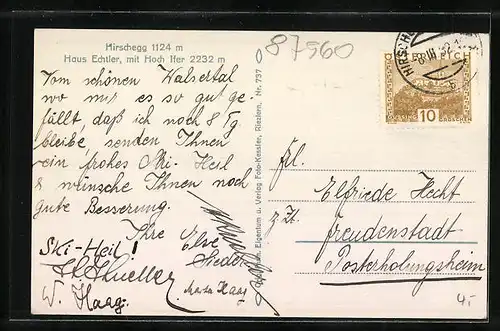 Hirschegg 1124 m
Haus Echtler, mit Hoch Ifer 2232 m
87560
Vom schönen Walsertal
wo mir es so gut ge-
fällt, daß ich noch 8 Tg
bleibe, senden Ihnen
ein frohes Ski-Heil
& wünsche Ihnen noch
gute Besserung.
Ihre Else
Ski-Heil!
W. Haag.
Marta Haag
Eigentum u. Verlag Foto-Kessler, Riezlern. Nr. 737
HIRSCHE
8.III.32
ÖSTERREICH
10
GROSCHEN
Frl.
Elfriede Hecht
z. Zt. Freudenstadt
Posterholungsheim
4.-